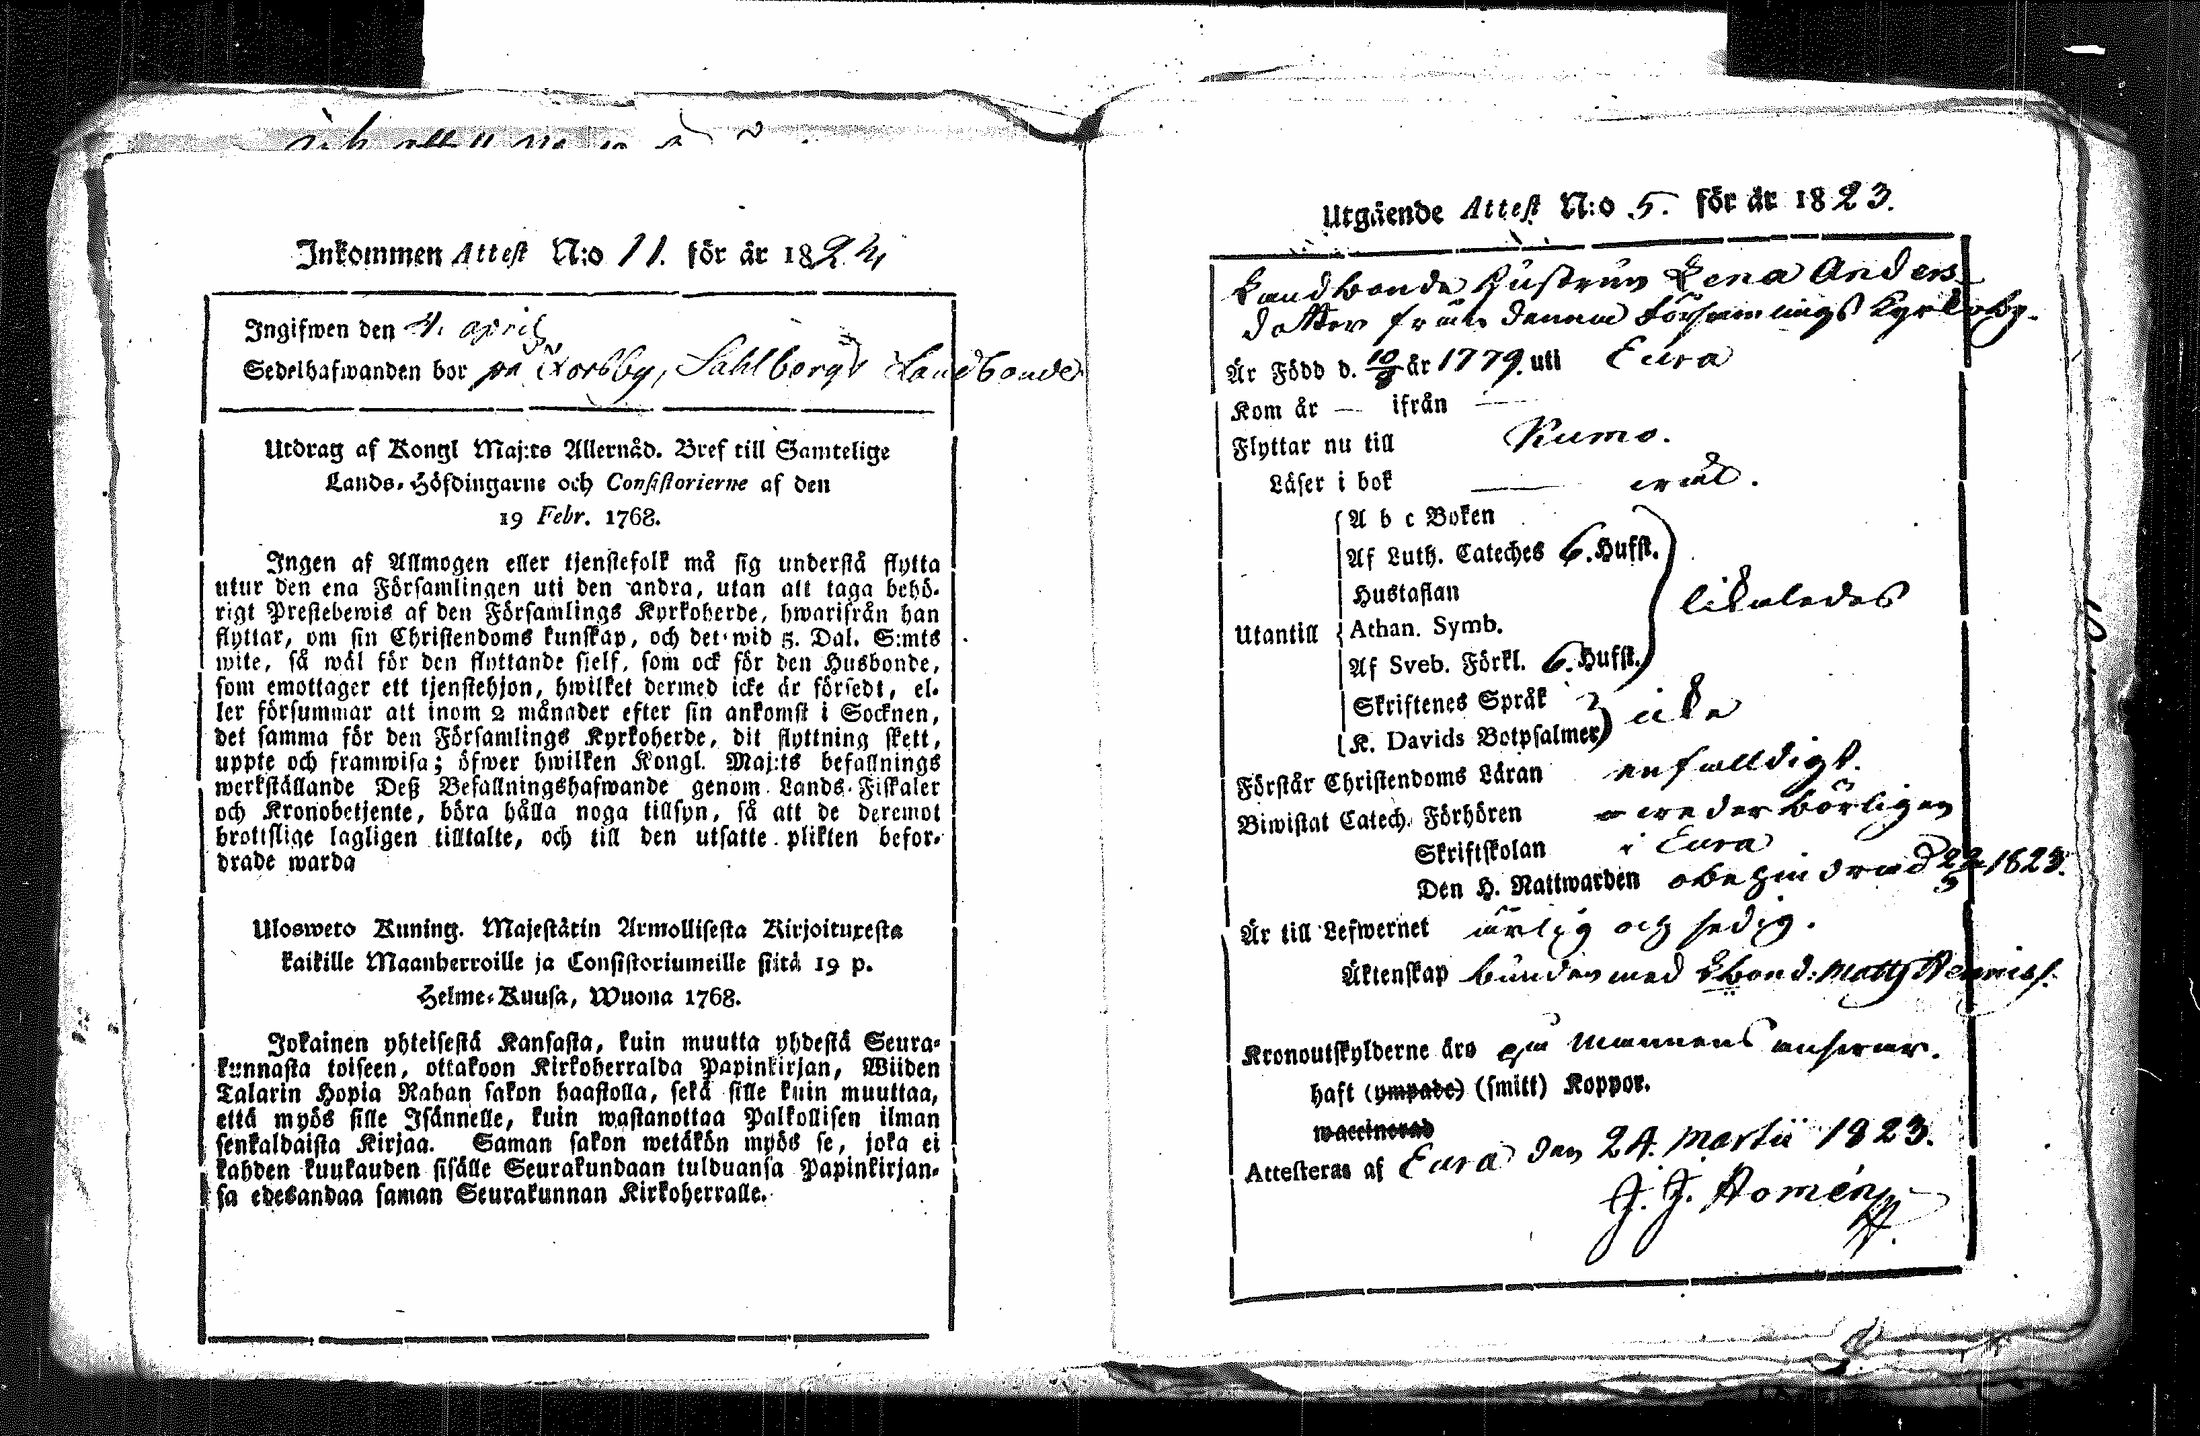 Inkommen Attest N:o 11. för år 1824
Ingifwen den 4. april
Sedelhafwanden bor på Forsby, Sahlbergs Landbonde
Utdrag af Kongl Maj:ts Allernåd. Bref till Samtelige
Lands-Höfdingarne och Consistorierne af den
19 Febr. 1768.
Ingen af Allmogen eller tjenstefolk må sig understå flytta
utur den ena Församlingen uti den andra, utan att taga behö-
rigt Prestebewis af den Församlings Kyrkoherde, hwarifrån han
flyttar, om sin Christendoms kunskap, och det wid 5. Dal. S:mts
wite, så wäl för den flyttande sjelf, som ock för den Husbonde,
som emottager ett tjenstehjon, hwilket dermed icke är försedt, el-
ler försummar att inom 2 månader efter sin ankomst i Socknen,
det samma för den Församlings Kyrkoherde, dit flyttning skett,
uppte och framwisa; öfwer hwilken Kongl. Maj:ts befallnings
werkställande Deß Befallningshafwande genom Lands-Fiskaler
och Kronobetjente, böra hålla noga tillsyn, så att de deremot
brottslige lagligen tilltalte, och till den utsatte plikten befor-
drade warda
Ulosweto Kuning. Majestätin Armollisesta Kirjoituxesta
kaikille Maanherroille ja Consistoriumeille siitä 19 p.
Helme-Kuusa, Wuona 1768.
Jokainen yhteisestä Kansasta, kuin muutta yhdestä Seura-
kunnasta toiseen, ottakoon Kirkoherralda Papinkirjan, Wiiden
Talarin Hopia Rahan sakon haastolla, sekä sille kuin muuttaa,
että myös sille Isännelle, kuin wastanottaa Palkollisen ilman
senkaldaista Kirjaa. Saman sakon wetäkön myös se, joka ei
kahden kuukauden sisälle Seurakundaan tulduansa Papinkirjan-
sa edesandaa saman Seurakunnan Kirkoherralle.
Utgående Attest N:o 5. för år 1823.
Landbonde hustrun Lena Anders
dotter från denna Församlings Kyrkoby.
Är Född d. 10/8 år 1779. uti Eura
Kom år — ifrån —
Flyttar nu till Kumo.
Läser i bok — wäl.
A b c Boken
Af Luth. Cateches 6. Hufst.
Hustaflan
likaledes
Utantill Athan. Symb.
Af Sveb. Förkl. 6. Hufst.
Skriftenes Språk
icke
K. Davids Botpsalmer
Förstår Christendoms Läran enfalldigt.
Biwistat Catech. Förhören wederbörligen
Skriftskolan i Eura
Den H. Nattwarden obehindrad 22/3 1823.
Är till Lefwernet ärlig och sedig.
Äktenskap bunden med Lbond: Matts Henrics.
Kronoutskylderne äro på Mannens answar.
haft (ympade) (smitt) Koppor.
waccinerad
Attesteras af Eura den 24. Martii 1823.
J. J. Homén